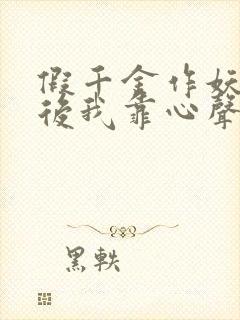 假千金作妖
後我靠心聲
黑軼